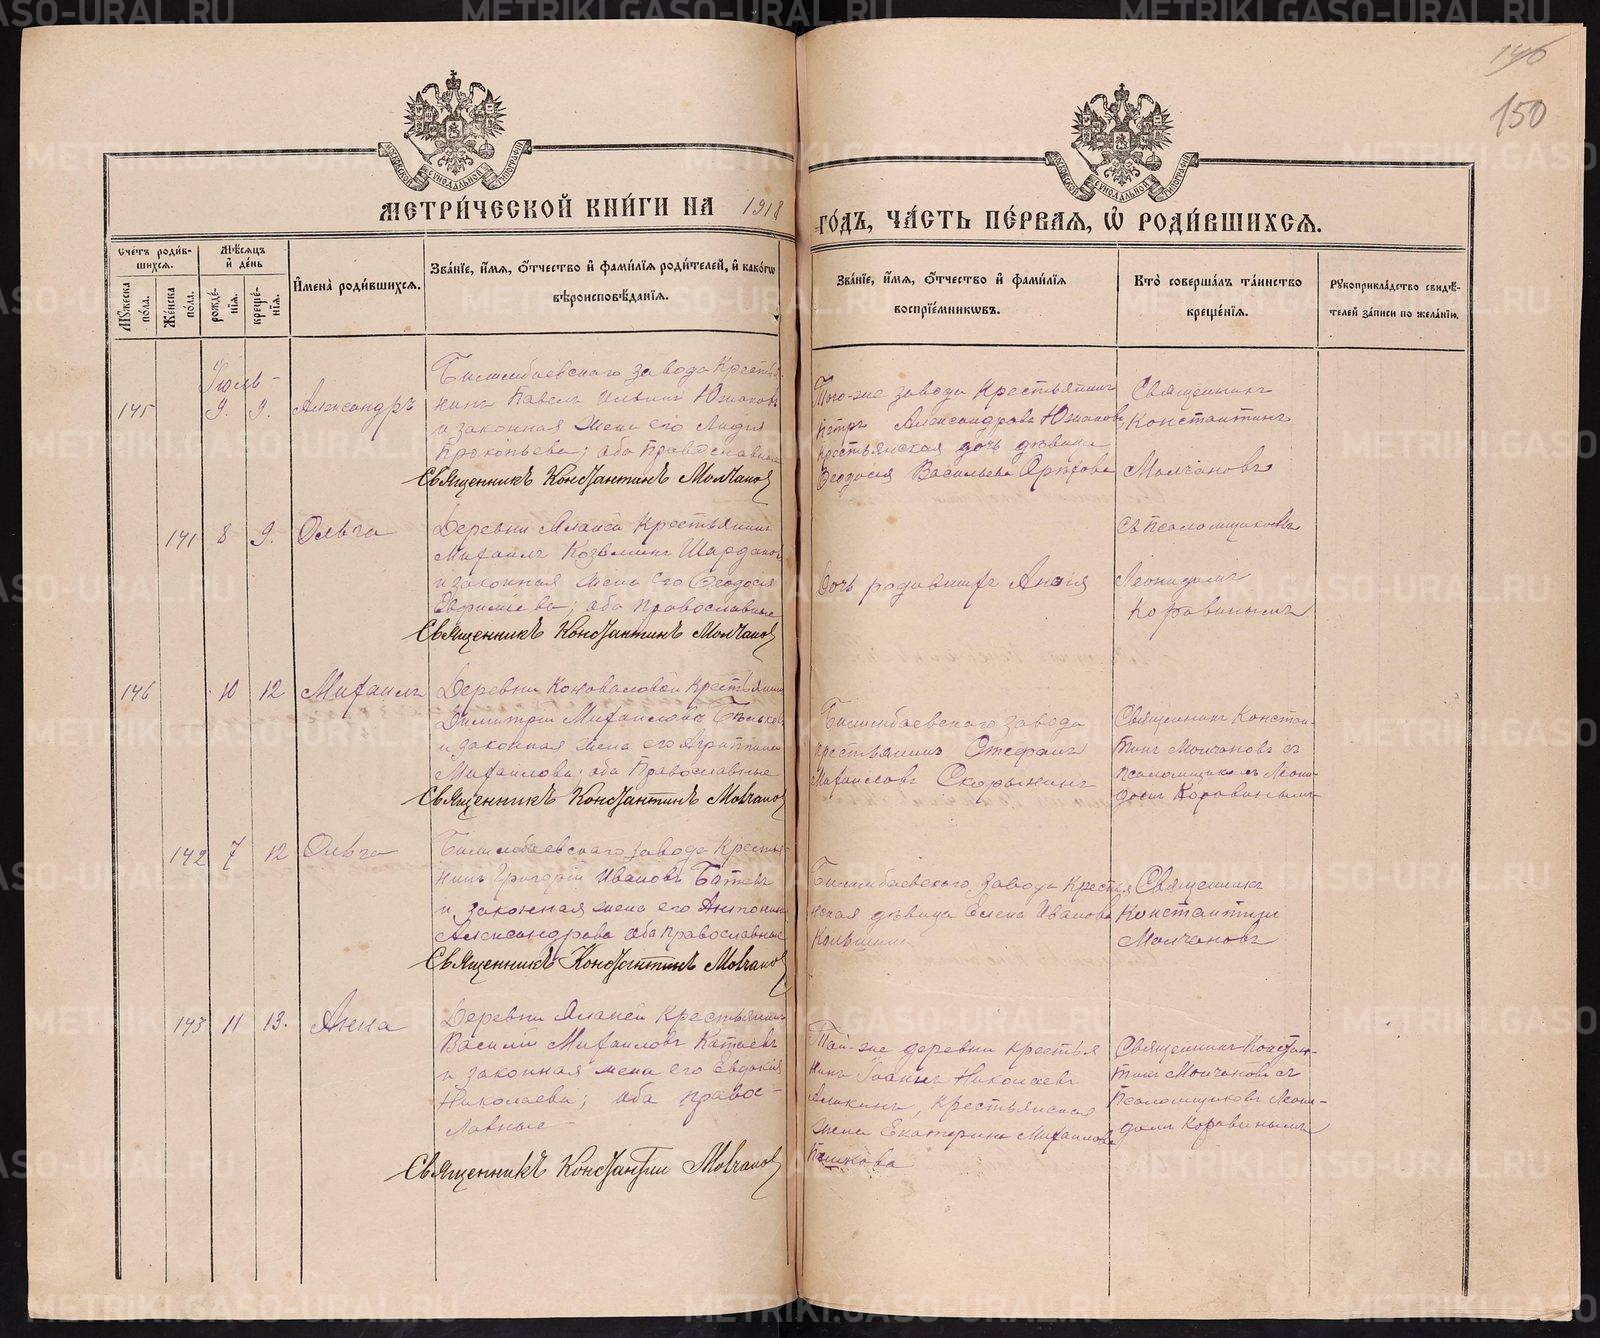 146
150
МЕТРИ́ЧЕСКОЙ КНИ́ГИ НА 1918
ГО́ДЪ, ЧА́СТЬ ПЕ́РВАЯ, Ѽ РОДИ́ВШИХСЯ.
Сче́тъ роди́в-
шихся.
Му́жеска
по́ла.
Же́нска
по́ла.
Мѣ́сяцъ
и҆ де́нь
рожде́-
нїя.
креще́-
нїя.
И҆мена̀ роди́вшихся.
Зва́нїе, и҆́мя, ѻ҆́тчество и҆ фами́лїя роди́телей, и҆ како́гѡ
вѣроисповѣ́данїя.
Зва́нїе, и҆́мя, ѻ҆́тчество и҆ фами́лїя
воспрїе́мникѡвъ.
Кто̀ соверша́лъ та́инство
креще́нїя.
Рꙋкоприкла́дство свидѣ́-
телей за́писи по жела́нїю.
145
Іюль
9. 9.
Александръ
Билимбаевскаго завода Крестья-
нинъ Павелъ Ильинъ Южаковъ
и законная жена его Лидія
Прокопьева; оба Православные
Священникъ Константинъ Молчановъ
Того-же завода Крестьянинъ
Петръ Александровъ Южаковъ,
крестьянская дочь дѣвица
Ѳеодосія Васильева
Священникъ
Константинъ
Молчановъ
141 8 9. Ольга
Деревни Крестьянинъ
Михаилъ Козьминъ
и законная жена его Ѳеодосія
Евфиміева; оба Православные
Священникъ Константинъ Молчановъ
Дочь родившаго
Съ псаломщикомъ
Леонидомъ
Коровинымъ
146 10 12 Михаилъ
Деревни Коноваловой Крестьянинъ
Димитрій Михаиловъ
и законная жена его Агриппина
Михаилова; оба Православные
Священникъ Константинъ Молчановъ
Билимбаевскаго завода
крестьянинъ Стефанъ
Михаиловъ Скорынинъ
Священникъ Констан-
тинъ Молчановъ съ
псаломщикомъ Леони-
домъ Коровинымъ
142 7 12 Ольга
Билимбаевскаго завода Кресть-
нинъ Григорій Ивановъ
и законная жена его Антонина
Александрова оба православные
Священникъ Константинъ Молчановъ
Билимбаевскаго завода Крестья
нская дѣвица Елена Иванова
Священникъ
Константинъ
Молчановъ
143 11 13. Анна
Деревни Крестьянинъ
Василій Михаиловъ Катаевъ
и законная жена его Евдокія
Николаева; оба правос-
лавные
Священникъ Константин Молчановъ
Той-же деревни крестья
нинъ Іоаннъ Николаевъ
Аликинъ, крестьянская
жена Екатерина Михаилова
Священникъ Констан-
тинъ Молчановъ съ
Псаломщикомъ Леони-
домъ Коровинымъ
METRIKI.GASO-URAL.RU